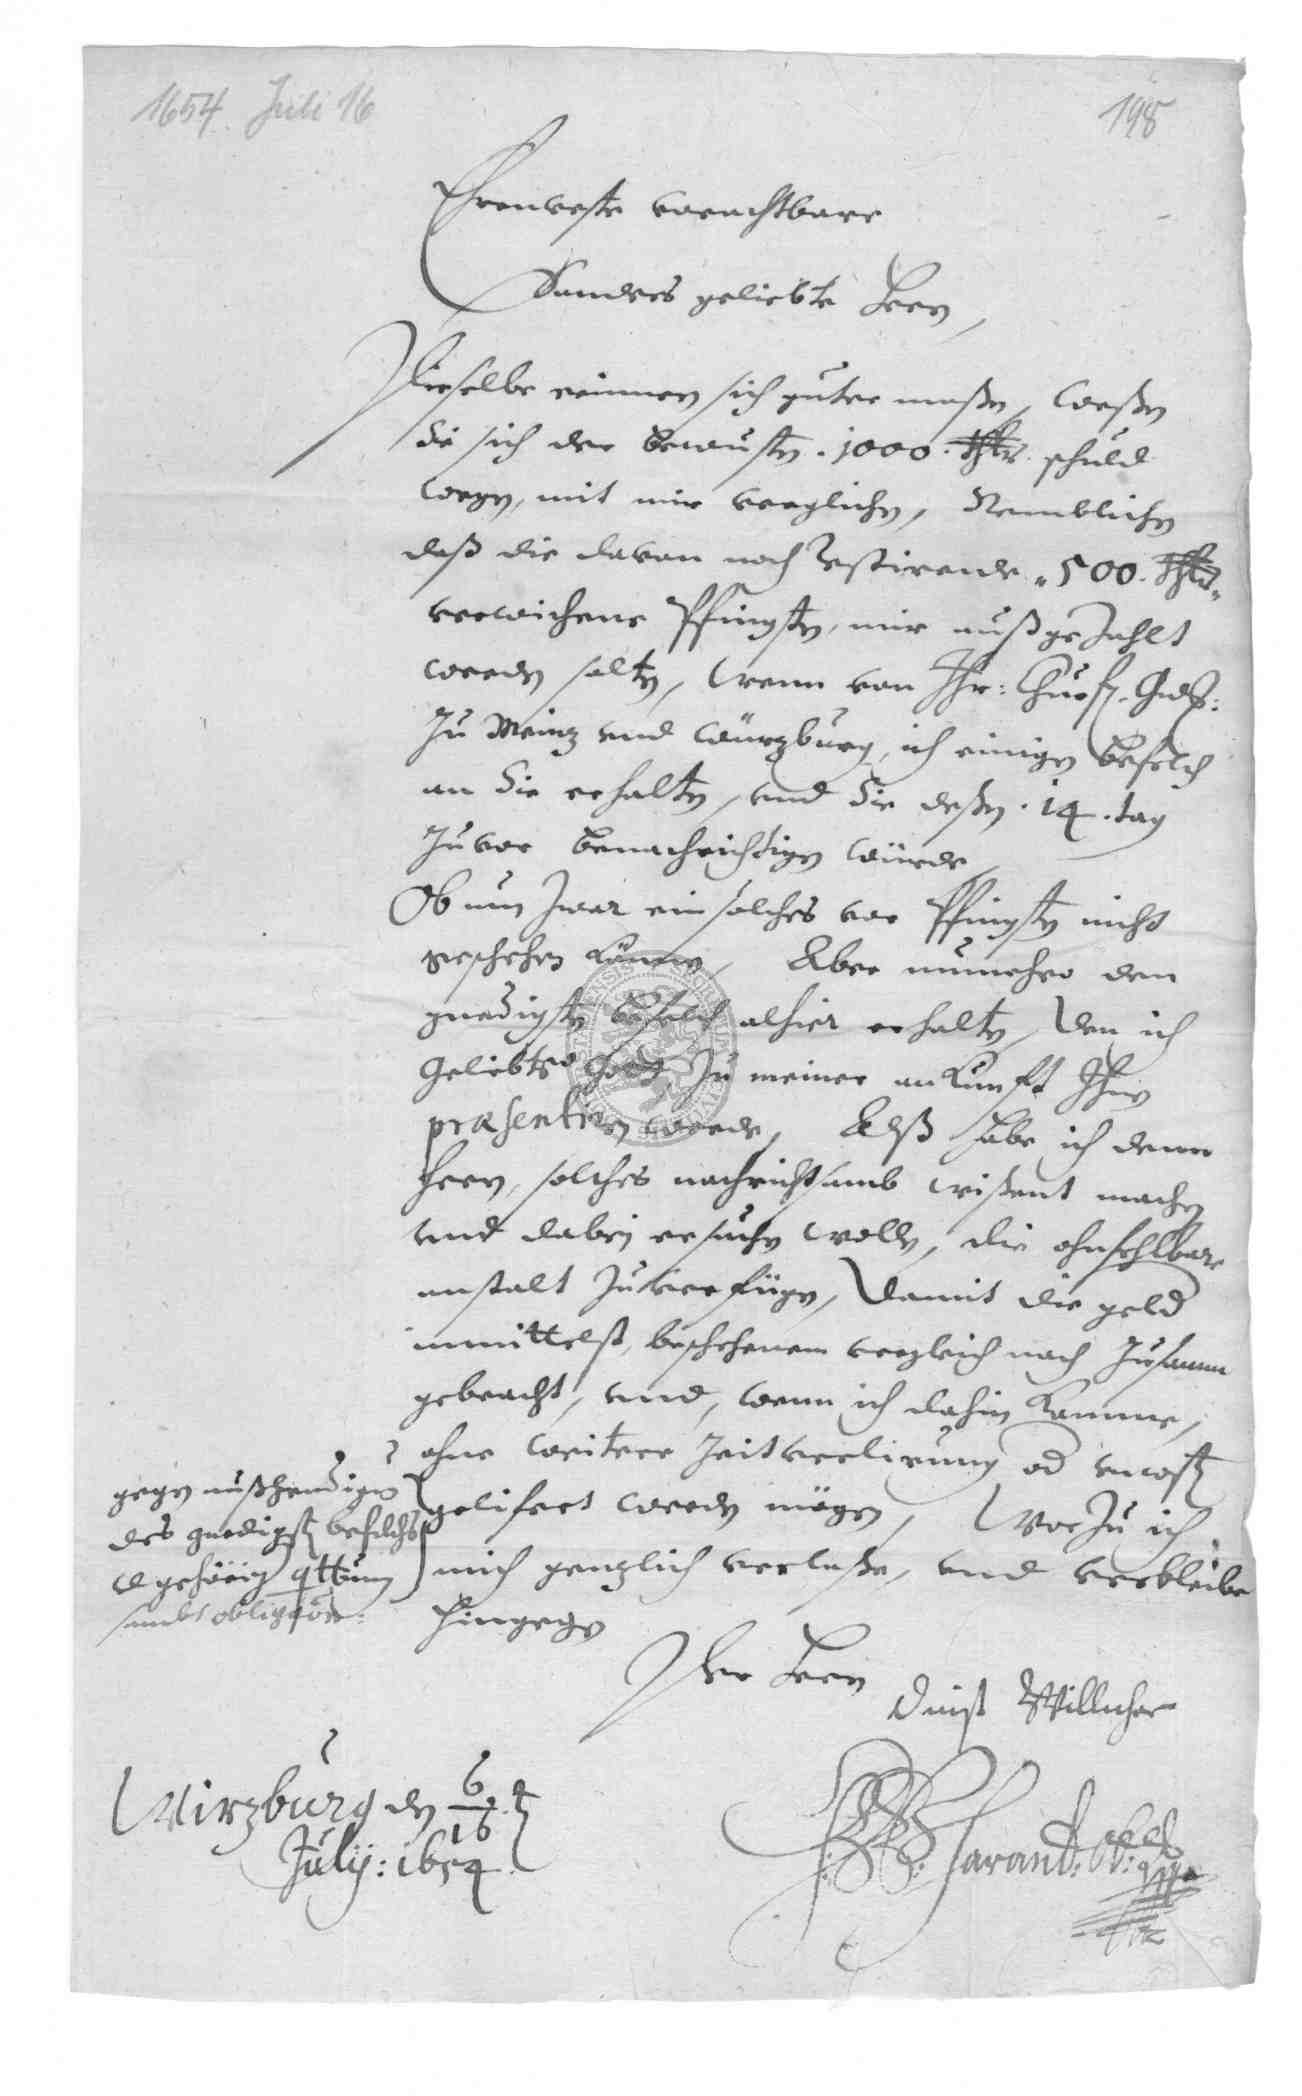 1654. Juli 16
198
Ehrenveste vorachtbare
Sonders geliebte Herrn,
Dieselbe erinnern sich guter maßen, weßen
Sie sich der bewusten . 1000 . Thlr. schuld
wegen, mit mir verglichen, Nemblichen
daß die davon noch restirende „ 500. Thlr.
verwichene Pfingsten, mir außgezahlt
werden solten, Wenn von Ihr: Churf. Gnd:
zu Meinz und Würzburg, ich einigen befelch
an Sie erhalten, und Sie deßen . 14 . tag
zuvor benachrichtigen würde,
Ob nun zwar ein solches vor Pfingsten nicht
geschehen können, Aber nunmehro den
gnedigsten befelch alhier erhalten, Den ich
Geliebts Gott, zu meiner ankunfft Ihnen
præsentiren werde, Alß habe ich denen
Herrn, solches nachrichtsamb wißent machen
und dabej ersuchen wollen, die ohnfehlbare
anstalt zuverfügen, Damit die geld
inmittelst, beschehenem vergleich nach zusamm
gebracht, und, wenn ich dahin komme,
ohne weitere zeitverlirung od uncosten
gelifert werden mögen, Worzu ich
mich genzlich verlaße, und verbleibe
hingegen
gegen außhendigung
des gnedigsten befelchs
gehörige quittung
sambt obligation:
Der Herrn
Dinst Williger
Wirzburg den 6/16
Julij: 1654